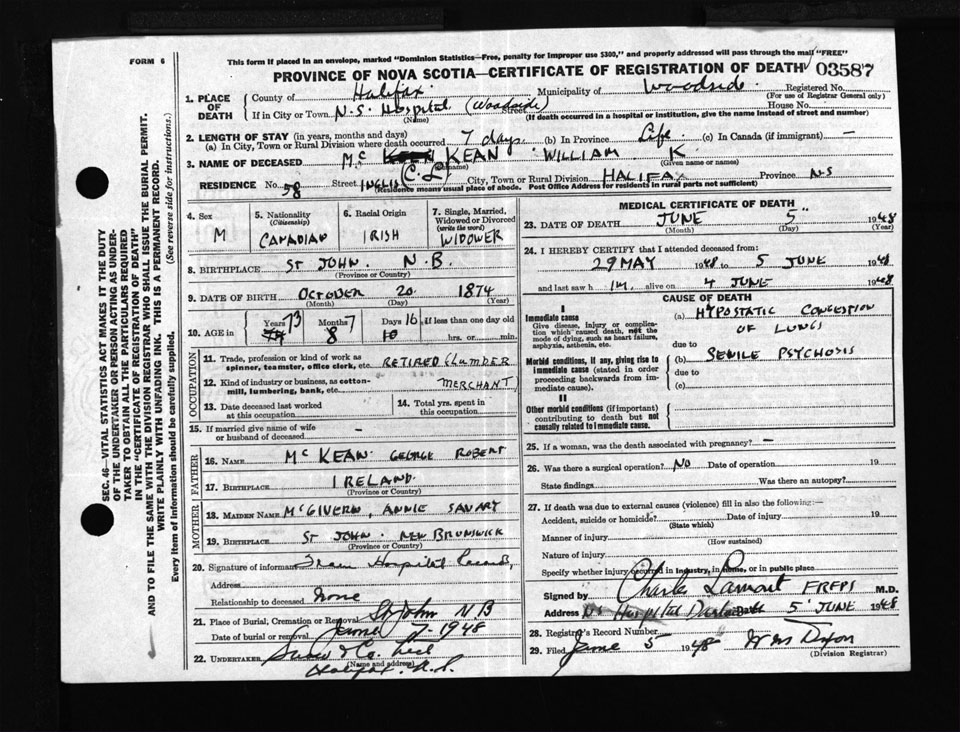 FORM 6
This form if placed in an envelope, marked "Dominion Statistics—Free, penalty for improper use $300," and properly addressed will pass through the mail "FREE"
PROVINCE OF NOVA SCOTIA—CERTIFICATE OF REGISTRATION OF DEATH 03587
1. PLACE OF DEATH
County of Halifax Municipality of Woodside Registered No.
(For use of Registrar General only)
If in City or Town N.S. Hospital (Woodside) Street House No.
(Name) (If death occurred in a hospital or institution, give the name instead of street and number)
2. LENGTH OF STAY (in years, months and days)
(a) In City, Town or Rural Division where death occurred 7 days. (b) In Province Life (c) In Canada (if immigrant) —
3. NAME OF DECEASED Mc KEAN WILLIAM K
(Surname) (Given name or names)
RESIDENCE No. 58 Street INGLIS (C.L.) City, Town or Rural Division HALIFAX Province N-S
(Residence means usual place of abode. Post Office Address for residents in rural parts not sufficient)
4. Sex
M
5. Nationality
(Citizenship)
CANADIAN
6. Racial Origin
IRISH
7. Single, Married, Widowed or Divorced
(write the word)
WIDOWER
8. BIRTHPLACE ST JOHN. N.B.
(Province or Country)
9. DATE OF BIRTH OCTOBER 20 1874
(Month) (Day) (Year)
10. AGE in Years 73 Months 8 7 Days 16 If less than one day
10 hrs. or min.
OCCUPATION
11. Trade, profession or kind of work as
spinner, teamster, office clerk, etc. RETIRED
12. Kind of industry or business, as cotton-
mill, lumbering, bank, etc. MERCHANT
13. Date deceased last worked
at this occupation
14. Total yrs. spent in
this occupation
15. If married give name of wife
or husband of deceased —
FATHER
16. NAME McKEAN GEORGE ROBERT
17. BIRTHPLACE IRELAND.
(Province or Country)
MOTHER
18. MAIDEN NAME McGIVERN, ANNIE
19. BIRTHPLACE ST JOHN. NEW BRUNSWICK
(Province or Country)
20. Signature of informant From Hospital Records,
Address
Relationship to deceased None
21. Place of Burial, Cremation or Removal St John N B
Date of burial or removal June 7 1948
22. UNDERTAKER Snow & Co. Ltd
(Name and address)
Halifax. N.S.
MEDICAL CERTIFICATE OF DEATH
23. DATE OF DEATH JUNE 5 1948
(Month) (Day) (Year)
24. I HEREBY CERTIFY that I attended deceased from:
29 MAY 1948 to 5 JUNE 1948
and last saw h im. alive on 4 JUNE 1948
CAUSE OF DEATH
I
Immediate cause
Give disease, injury or complica-
tion which caused death, not the
mode of dying, such as heart failure,
asphyxia, asthenia, etc.
(a) HYPOSTATIC CONGESTION
OF LUNGS
due to
Morbid conditions, if any, giving rise to
immediate cause (stated in order
proceeding backwards from im-
mediate cause)
(b) SENILE PSYCHOSIS
due to
(c)
II
Other morbid conditions (if important)
contributing to death but not
causally related to immediate cause.
25. If a woman, was the death associated with pregnancy? —
26. Was there a surgical operation? NO Date of operation 19
State findings Was there an autopsy?
27. If death was due to external causes (violence) fill in also the following:—
Accident, suicide or homicide? Date of injury 19
(State which)
Manner of injury
(How sustained)
Nature of injury
Specify whether injury occurred in industry, in home, or in public place
Signed by Charles Lamont FRFPS M.D.
Address N.S. Hospital Dartmouth 5 JUNE 1948
28. Registrar's Record Number
29. Filed June 5 1948 Dixon
(Division Registrar)
SEC. 46—VITAL STATISTICS ACT MAKES IT THE DUTY
OF THE UNDERTAKER OR PERSON ACTING AS UNDER-
TAKER TO OBTAIN ALL THE PARTICULARS REQUIRED
IN THE "CERTIFICATE OF REGISTRATION OF DEATH"
AND TO FILE THE SAME WITH THE DIVISION REGISTRAR WHO SHALL ISSUE THE BURIAL PERMIT.
WRITE PLAINLY WITH UNFADING INK. THIS IS A PERMANENT RECORD.
Every item of information should be carefully supplied. (See reverse side for instructions.)